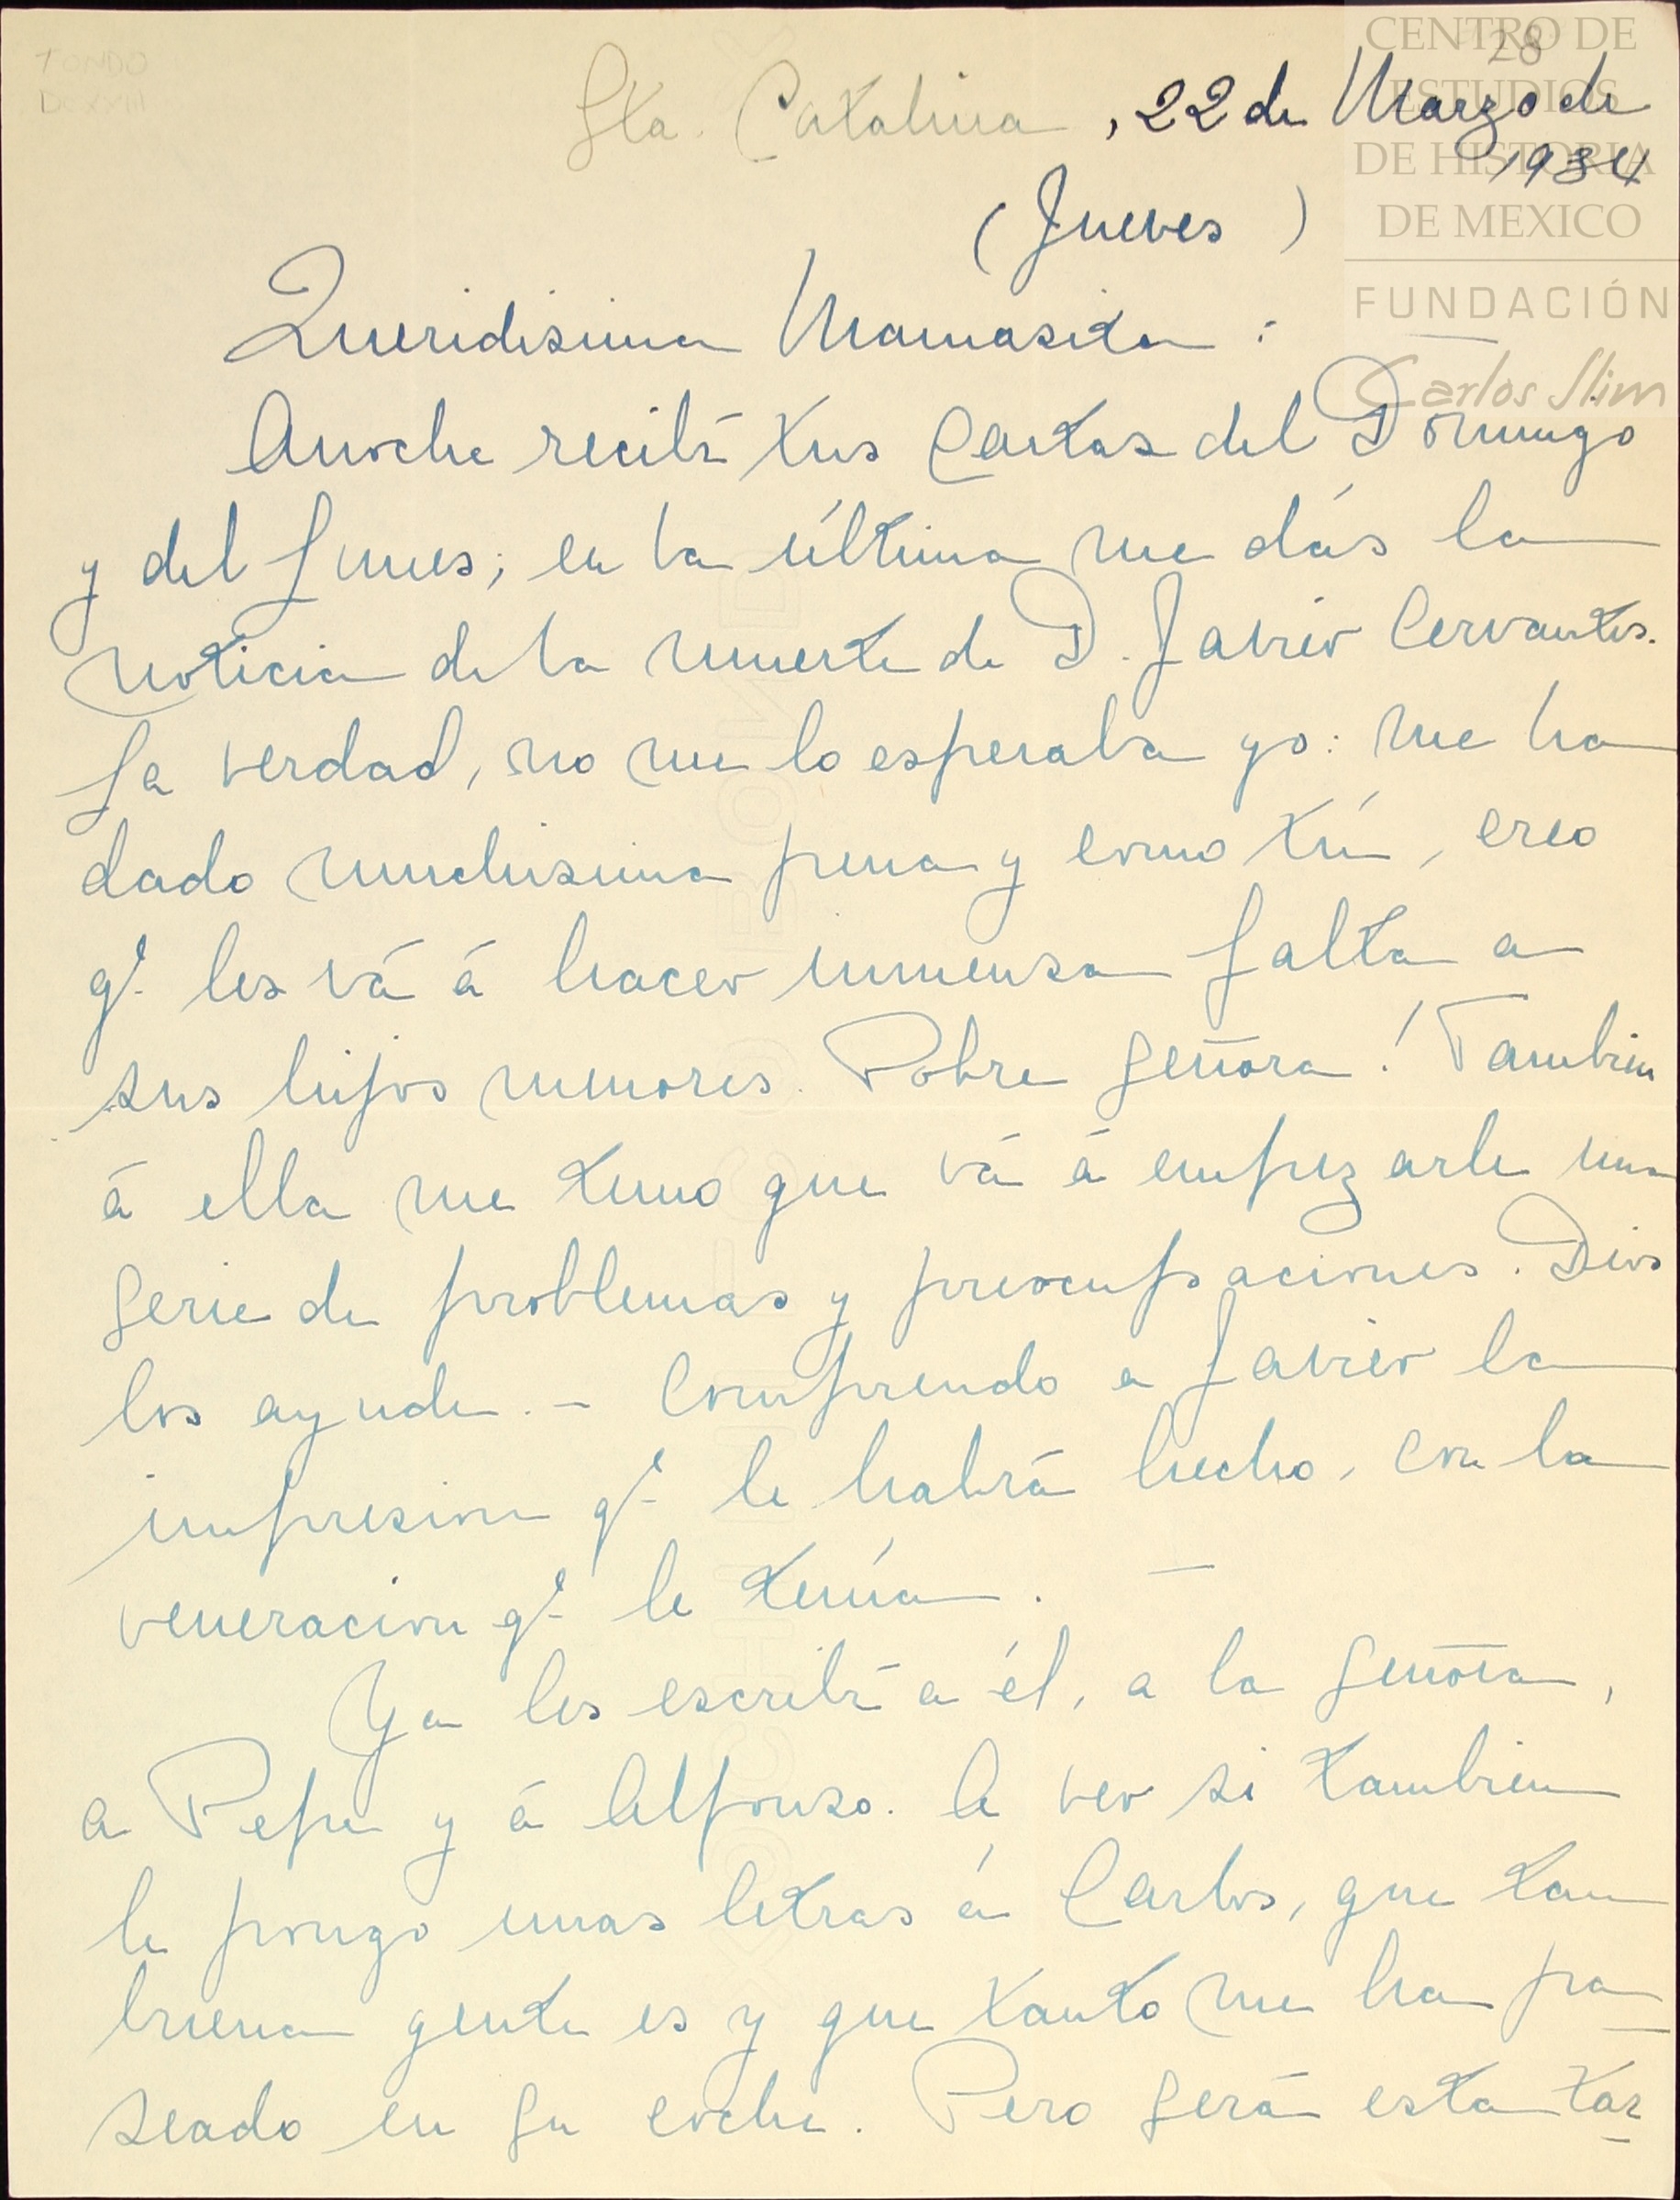 FONDO
DCXXIII
28
CENTRO DE
ESTUDIOS
DE HISTORIA
DE MEXICO
FUNDACIÓN
Carlos Slim
Sta. Catalina, 22 de Marzo de
1934
(Jueves)
Queridisima Mamasita:
Anoche recibí tus Cartas del Domingo
y del Lunes; en la última me dás la
noticia de la muerte de D. Javier Cervantes.
La verdad, no me lo esperaba yo: me ha
dado muchisima pena y como tú, creo
qe. les vá á hacer inmensa falta a
sus hijos menores. Pobre Señora! Tambien
á ella me temo que vá á empezarle una
serie de problemas y preocupaciones. Dios
los ayude. - Comprendo a Javier la
impresion qe. le habrá hecho, con la
veneracion qe. le tenía. —
Ya les escribí a él, a la Señora,
a Pepe y á Alfonso. A ver si tambien
le pongo unas letras á Carlos, que tan
buena gente es y que tanto me ha pa
seado en su coche. Pero será esta tar